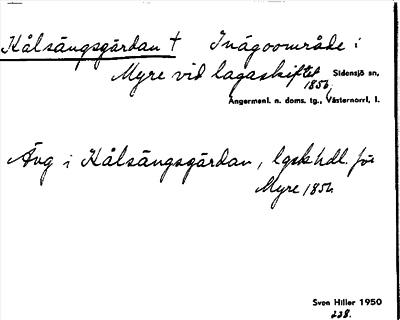 Kålsängsgärdan † Inägoområde i
Myre vid lagaskiftet
1856,
Sidensjö sn,
Ångermanl. n. doms. tg., Västernorrl. l.
Äng i Kålsängsgärdan, lgskhdl. för
Myre 1856.
Sven Hiller 1950
228.